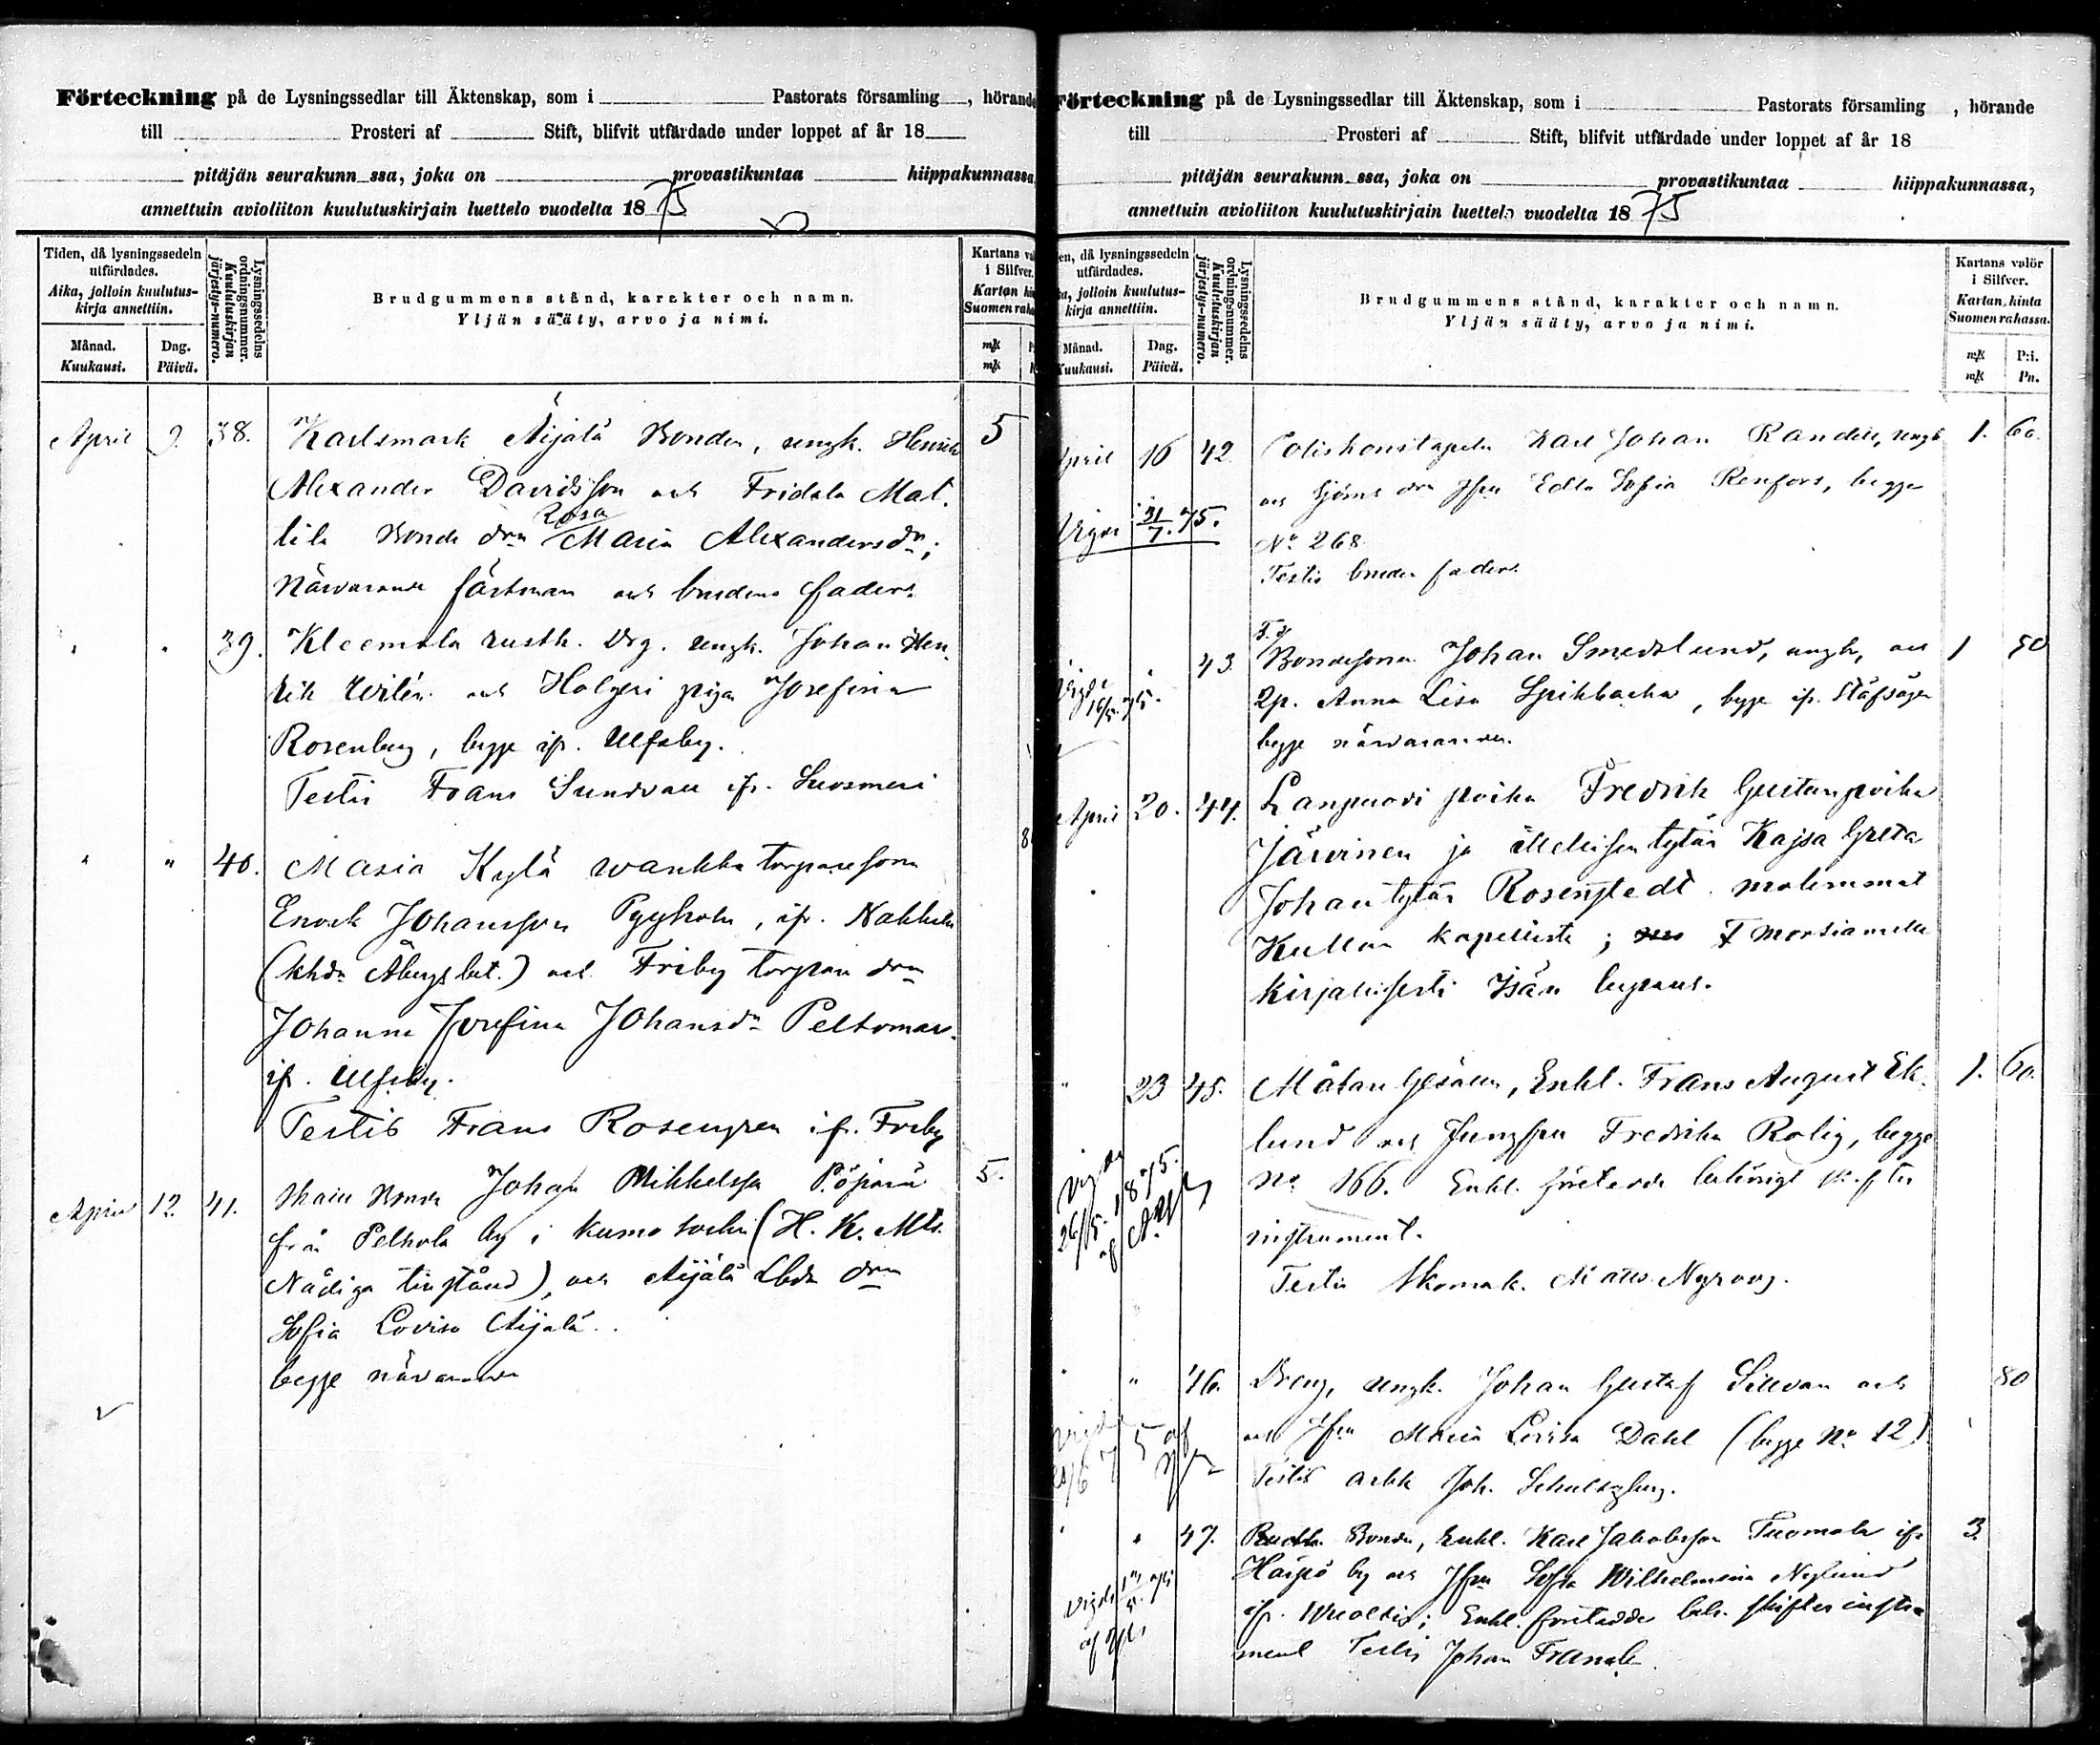 Förteckning på de Lysningssedlar till Äktenskap, som i Pastorats församling , hörande
till Prosteri af Stift, blifvit utfärdade under loppet af år 18
pitäjän seurakunn ssa, joka on provastikuntaa hiippakunnassa
annettuin avioliiton kuulutuskirjain luettelo vuodelta 1875
Tiden, då lysningssedeln utfärdades.
Aika, jolloin kuulutus-
kirja annettiin.
Månad.
Kuukausi.
Dag.
Päivä.
Lysningssedelns
ordningsnummer.
Kuulutuskirjan
järjestys-numero.
Brudgummens stånd, karakter och namn.
Yljän sääty, arvo ja nimi.
Kartans
i Silfver.
Kartan
Suomen
mk
mk
April 9. 38. Karlsmark Äijälä Bonden, ungk. Henrik 5
Alexander Davidsson och Fridala Mat-
tila Bonde drn Rosa Maria Alexandersdr;
Närvarande fästman och brudens fader.
" " 39. Kleemola rusth. Drg. ungk. Johan Hen-
rik och Holgeri pigan Josefina
Rosenberg, begge ifr. Ulfsby.
Testis Frans Sundvall ifr. Suosmeri
" " 40. Masia Kylä wankka torpareson 8
Enock Johansson Pyyholm, ifr. Nakkila
( Åbergs bet.) och Friby torpare drn
Johanna Josefina Johansdr
ifr. Ulfsby.
Testis Frans Rosengren ifr. Friby
April 12. 41. Bonde Johan Mikkelsson 5.
från Pelhola by i Kumo socken (H. K. Mts.
Nådiga tillstånd), och Äijälä drn
Sofia Lovisa Äijälä.
begge närvarande
Förteckning på de Lysningssedlar till Äktenskap, som i Pastorats församling , hörande
till Prosteri af Stift, blifvit utfärdade under loppet af år 18
pitäjän seurakunn ssa, joka on provastikuntaa hiippakunnassa,
annettuin avioliiton kuulutuskirjain luettelo vuodelta 1875
en, då lysningssedeln utfärdades.
a, jolloin kuulutus-
kirja annettiin.
Månad.
Kuukausi.
Dag.
Päivä.
Lysningssedelns
ordningsnummer.
Kuulutuskirjan
järjestys-numero.
Brudgummens stånd, karakter och namn.
Yljän sääty, arvo ja nimi.
Kartans valör
i Silfver.
Kartan hinta
Suomen rahassa.
mk P:i.
mk Pn.
April 16 42. Poliskonstapeln Karl Johan Randell, ungk 1. 60.
och Sjöms drn Jfru Edla Sofia Renfors, begge
Vigde 31/7. 75. No 268.
Testis brudens fader.
F. d.
43. Bondesonen Johan Smedslund, ungk, och 1 50
Vigde 16/5. 75. 2p. Anna Lisa Spikbacka, begge ifr.
begge närvarande.
April 20. 44. Lanpuodi poika Fredrik Gustavpoika
Järvinen ja itsellisen tytär Kajsa Greta
Johantytär Rosenstedt molemmat
Kullaa kapellista; morsiamella
kirjallisesti Isän lupaus.
" 23 45. Målare Gesällen, Enkl. Frans August Ek- 1. 60.
lund och Jungfru Fredrika Rolig, begge
No 166. Enkl. företedde behörigt skiftes
Vigde 26/5. 1875. af instrument.
Testis Skomak. Matts Nyroos.
" " 46. Dreng, ungk. Johan Gustaf Sillvan och 80
och Jfru Maria Lovisa Dahl (begge No 12)
Testis arbk Joh. Schultzberg.
" " 47. Rusth. Bonden, Enkl. Karl Jakobsson Tuomola ifr 3
by och Jfru Sofia Wilhelmina Neglund
Vigde af ifr. Wuoltis; Enkl. företedde beh. skiftes instru-
ment Testis Johan